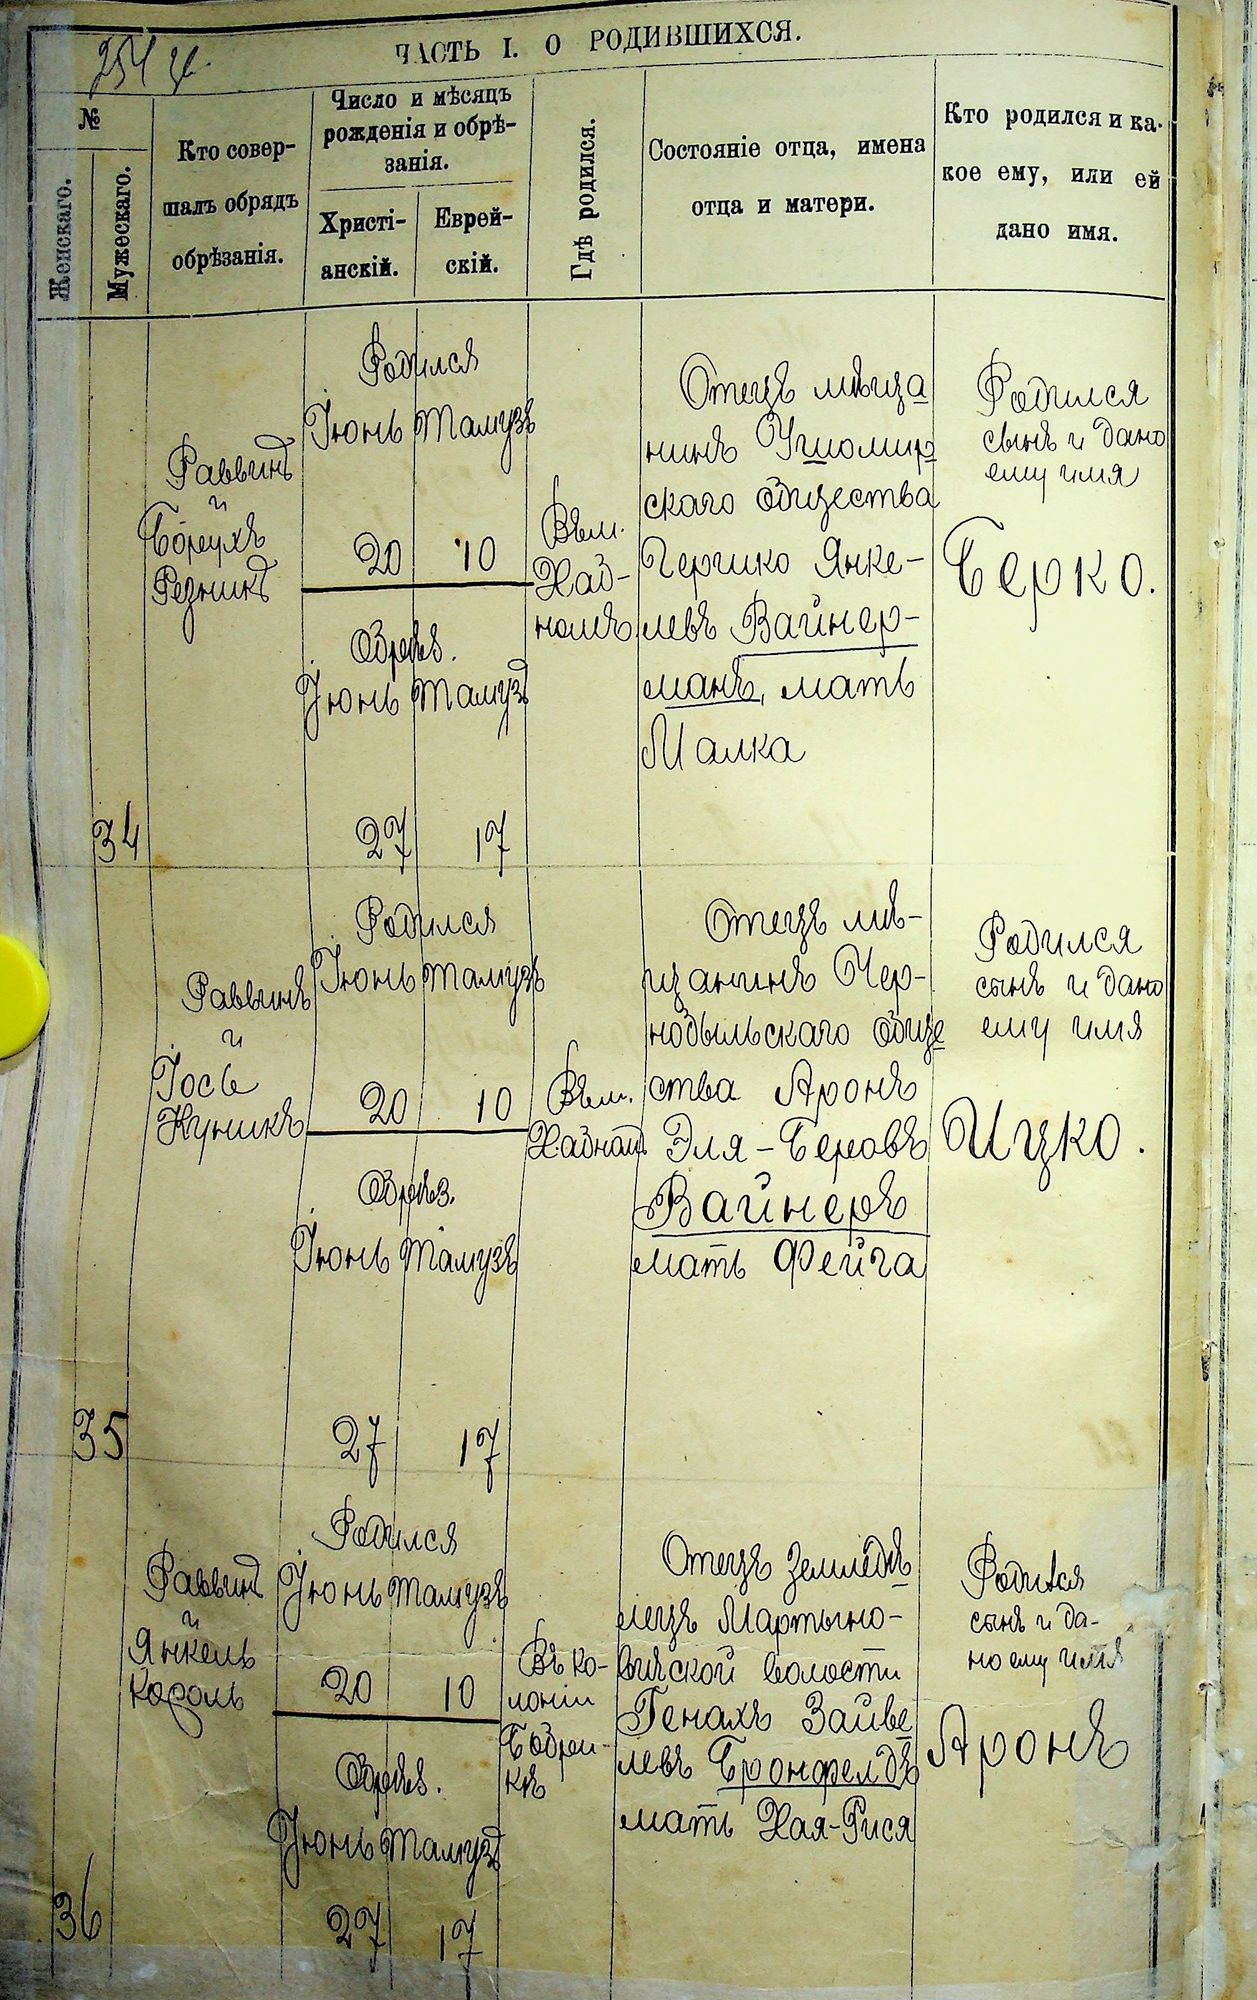 ЧАСТЬ I. О РОДИВШИХСЯ.
№
Женскаго.
Мужескаго.
Кто совер-
шалъ обрядъ
обрѣзанія.
Число и мѣсяцъ
рожденія и обрѣ-
занія.
Христі-
анскій.
Еврей-
скій.
Гдѣ родился.
Состояніе отца, имена
отца и матери.
Кто родился и ка-
кое ему, или ей
дано имя.
34
Раввинъ
и
Борухъ
Резникъ
Родился
Іюнь Тамузъ
20 10
Обрѣз.
Іюнь Тамузъ
27 17
Въ м.
Хаб-
номъ
Отецъ мѣща
нинъ Ушомир
скаго общества
Гершко Янке-
левъ Вайнер-
манъ, мать
Малка
Родился
сынъ и дано
ему имя
Берко.
35
Раввинъ
и
Іось
Куникъ
Родился
Іюнь Тамузъ
20 10
Обрѣз.
Іюнь Тамузъ
27 17
Въ м.
Хабном
Отецъ мѣ-
щанинъ Чер-
нобыльскаго обще
ства Аронъ
Эля-Беровъ
Вайнеръ
мать Фейга
Родился
сынъ и дано
ему имя
Ицко.
36
Раввинъ
и
Янкель
Король
Родился
Іюнь Тамузъ
20 10
Обрѣз.
Іюнь Тамузъ
27 17
Въ ко-
лоніи
Отецъ земледѣ
лецъ Мартыно-
вичской волости
Генахъ Зайве
левъ Бронфелдъ
мать Хая-Рися
Родился
сынъ и да-
но ему имя
Аронъ